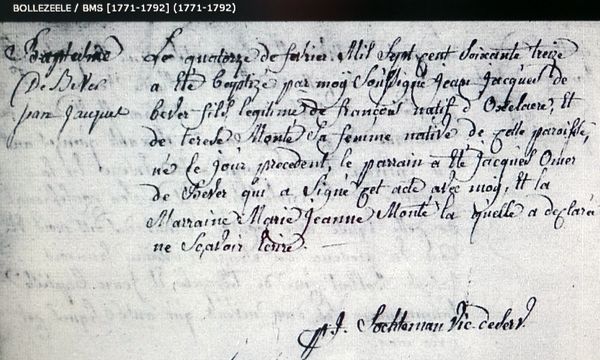 BOLLEZEELE / BMS [1771-1792] (1771-1792)
Baptême
De Bever
jean Jacques
Le quatorze de fevrier Mil Sept cent soixante treize
a été baptizé par moy Soussigné jean jacques de
bever fils legitime de françois natif d'Oxelaere, Et
de terese Monté Sa femme native de cette paroisse,
né le jour precedent, le parrain a été jacques Omer
de Bever qui a Signé cet acte avec moy, Et la
Marraine Marie jeanne Monté la quelle a declaré
ne Sçavoir Ecrire.
Vic. deserv.